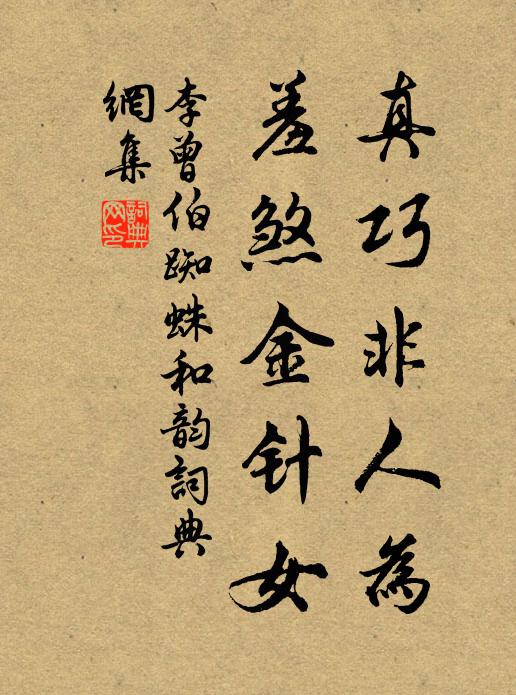 真巧非人為
羞煞金针女
李曾伯踟蛛和韵詞典
網集
詞典
网印